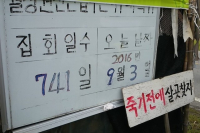 집회일수 오늘날짜
2016년
741일 9월3일
죽기전에 살곳찾자